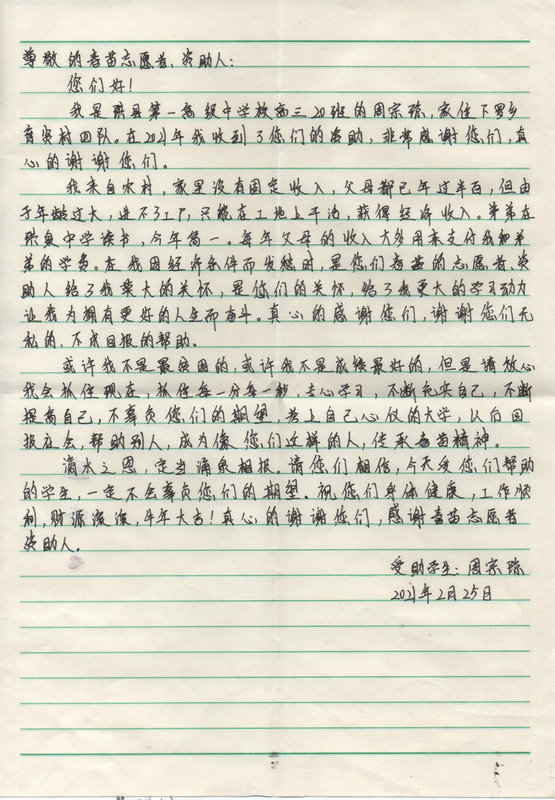 尊敬的青苗志愿者、资助人:
您们好!
我是珙县第一高级中学校高三20班的周宗琼,家住下罗乡
育贤村四队。在2021年我收到了您们的资助,非常感谢您们,真
心的谢谢您们。
我来自农村,家里没有固定收入,父母都已年过半百,但由
于年龄过大,进不了工厂,只能在工地上干活,获得经济收入。弟弟在
珙泉中学读书,今年高一。每年父母的收入大多用来支付我和弟
弟的学费。在我因经济条件而发愁时,是您们青苗的志愿者、资
助人给了我莫大的关怀,是您们的关怀,给了我更大的学习动力
让我为拥有更好的人生而奋斗。真心的感谢您们,谢谢您们无
私的、不求回报的帮助。
或许我不是最贫困的,或许我不是成绩最好的,但是请放心
我会抓住现在,抓住每一分每一秒,专心学习,不断充实自己,不断
提高自己,不辜负您们的期望,考上自己心仪的大学,以后回
报社会,帮助别人,成为像您们这样的人,传承青苗精神。
滴水之恩,定当涌泉相报。请您们相信,今天受您们帮助
的学生,一定不会辜负您们的期望。祝您们身体健康,工作顺
利,财源滚滚,牛年大吉!真心的谢谢您们,感谢青苗志愿者
资助人。
受助学生:周宗琼
2021年2月25日